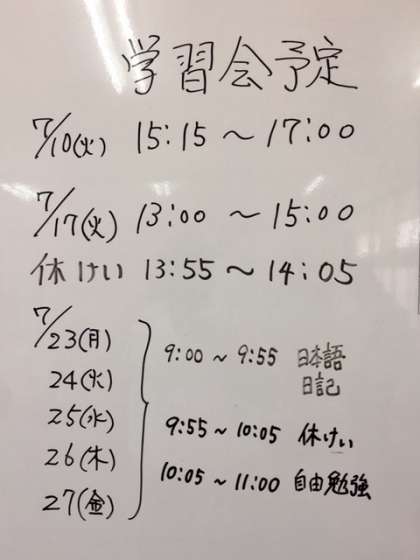 学習会予定
7/10(火) 15:15 ～ 17:00
7/17(火) 13:00 ～ 15:00
休けい 13:55 ～ 14:05
7/23(月)
24(火)
25(水)
26(木)
27(金)
9:00 ～ 9:55 日本語
日記
9:55 ～ 10:05 休けい
10:05 ～ 11:00 自由勉強